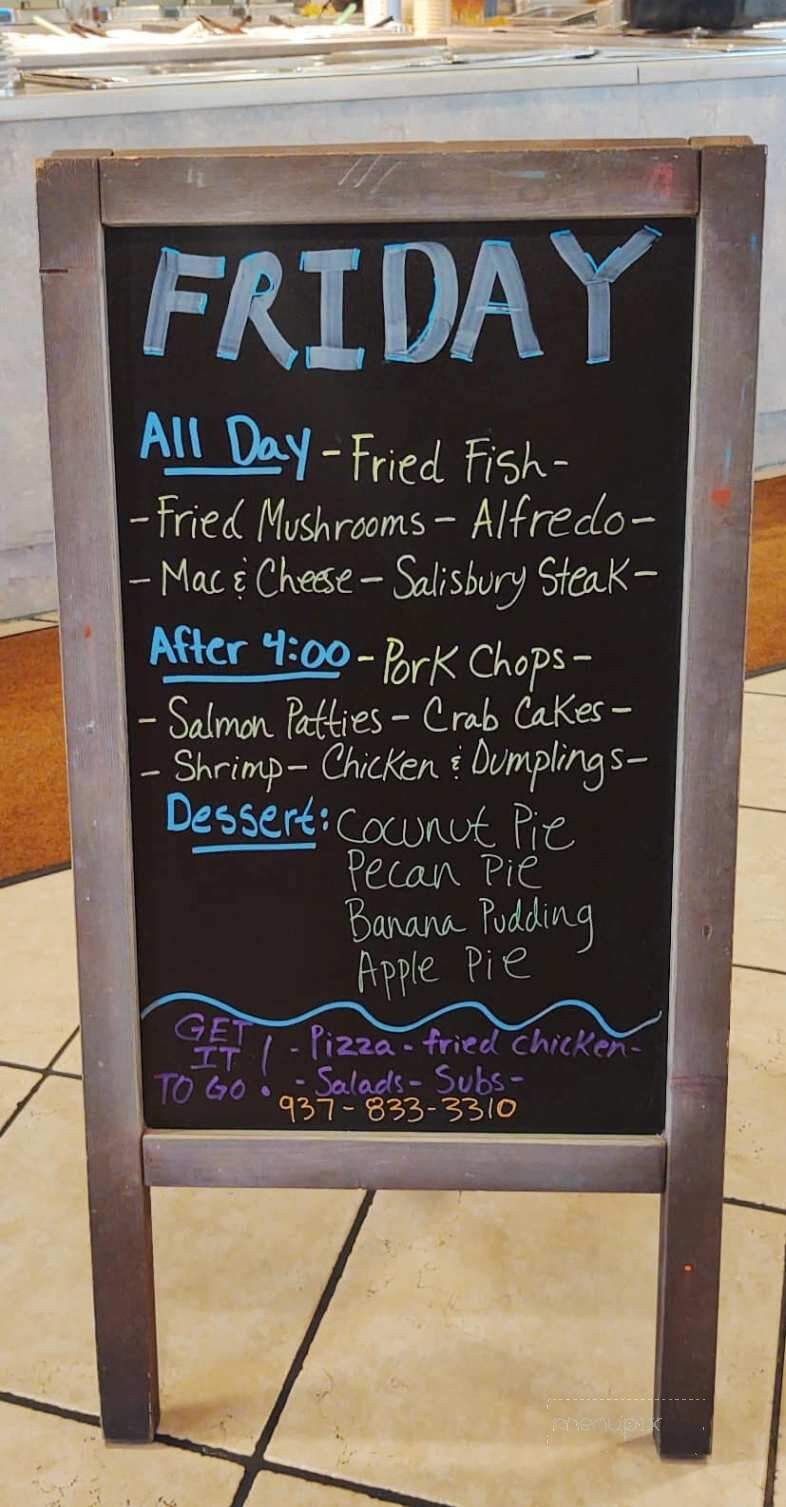 FRIDAY
All Day - Fried Fish -
- Fried Mushrooms - Alfredo -
- Mac & Cheese - Salisbury Steak -
After 4:00 - Pork Chops -
- Salmon Patties - Crab Cakes -
- Shrimp - Chicken & Dumplings -
Dessert: Cocunut Pie
Pecan Pie
Banana Pudding
Apple Pie
GET IT TO GO! - Pizza - fried chicken -
- Salads - Subs -
937-833-3310
menupix